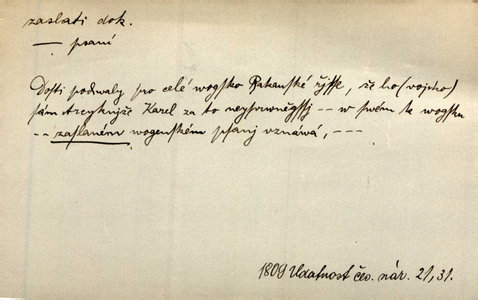 zaslati dok.
— psaní
Dosti podiwaly pro celé wogsko Rakauské řjsse, že ho (vojsko)
sám Arcyknjže Karel za to neystatečněgssj -- w swém k wogsku
-- zaslaném wogenském psanj vznáwá, ---
1809 Udatnost čes. nár. 21, 31.